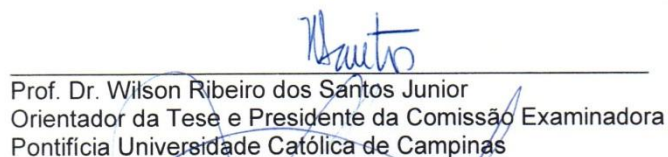 Prof. Dr. Wilson Ribeiro dos Santos Junior
Orientador da Tese e Presidente da Comissão Examinadora
Pontifícia Universidade Católica de Campinas